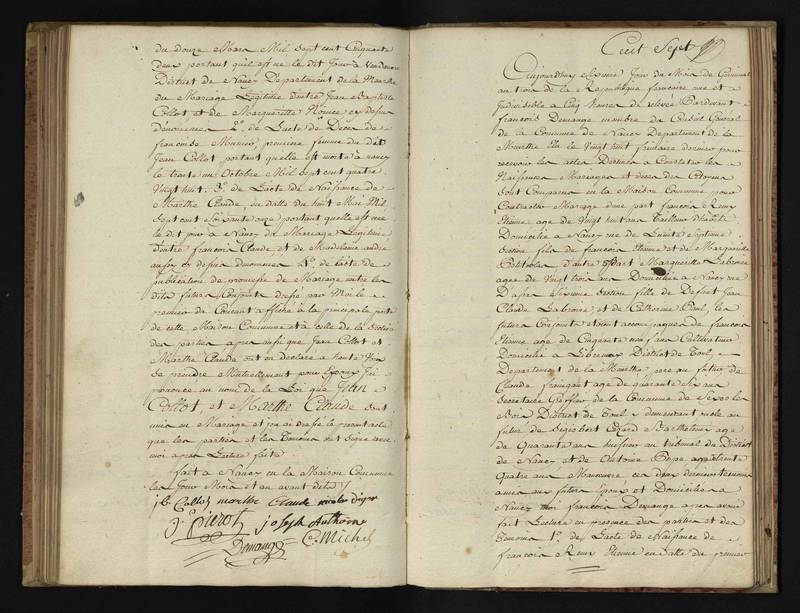 du douze Mars Mil Sept cent Cinquante
deux portant quil est né le dit Jour à
District de Nancy Departement de la Meurthe
du Mariage Legitime dentre Jean Baptiste
Collot et de Marguerite
denommés 2°. de Lacte de Décès de
françoise premiere femme du dit
Jean Collot portant quelle est morte à nancy
le trente un Octobre Mil Sept cent quatre
Vingt huit. 3°. de Lacte de Naissance de
Marthe Claude, en datte du huit Mai Mil
Sept cent Soixante onze portant quelle est née
le dit jour à Nancy du Mariage Legitime
dentre francois Claude et de Magdelaine
aussy cy dessus denommés 4°. de Lacte de
publication de promesse de Mariage entre les
dits futurs Conjoints dressé par Moi le
premier du Courant affiché à la principale porte
de cette Maison Commune et à celle de la Section
des parties apres aussi que Jean Collot et
Marthe Claude ont eu declaré a haute Voix
Se prendre Mutuellement pour Epoux J'ai
prononcé au nom de la Loi que Jean
Collot, et Marthe Claude Sont
unis en Mariage et j'en ai dressé le présent acte
que les parties et les Temoins ont Signé avec
moi apres Lecture faite
fait à Nancy en la Maison Commune
les Jour Mois et an avant dits
Collot marthe Claude nicolas
Pierot joseph Anthoine
Demange C. Michel
Cent Sept
Aujourdhuy Sixieme Jour du Mois de Germinal
an trois de la Republique francaise une et
Indivisible a Cinq heures de relevé Pardevant
francois Demange membre du Conseil General
de la Commune de Nancy Departement de la
Meurthe Elu le Vingt huit frimaire dernier pour
recevoir les actes Destinés a Constater les
Naissances Mariages et deces des Citoyens
Sont Comparus en la Maison Commune pour
Contracter Mariage dune part francois Remy
Etienne age de Vingt huit ans Tailleur dhabits
Domicilié a Nancy rue de Lunité Septieme
Section fils de francois Etienne et de Marguerite
d'autre Part Marguerite
agee de Vingt trois ans Domiciliée a Nancy rue
Sixieme Section fille de Defunt Jean
Claude et de Catherine les
futurs Conjoints etoient accompagnés de francois
Etienne age de Cinquante ans Cultivateur
Domicilié a District de Toul,
Departement de la Meurthe pere au futur de
Claude age de quarante Six ans
Secretaire Greffier de la Commune de
Bois District de Toul y demeurant oncle au
futur de Sigisbert Barthelemy age
de Quarante ans huissier au tribunal du District
de Nancy et de Antoine age de trente
Quatre ans ces deux derniers temoins
amis aux futurs Epoux et Domiciliés a
Nancy Moi francois Demange apres avoir
fait Lecture en presence des parties et des
Temoins 1°. de Lacte de Naissance de
francois Remy Etienne en datte du premier